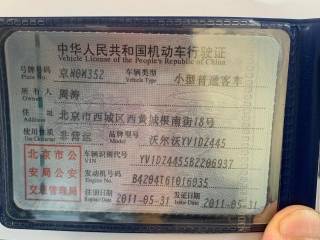 中华人民共和国机动车行驶证
Vehicle License of the People's Republic of China
号牌号码 京N0M352 车辆类型 小型普通客车
Plate No. Vehicle Type
所有人 周涛
Owner
住址 北京市西城区西黄城根南街18号
Address
使用性质 非营运 品牌型号 沃尔沃YV1DZ445
Use Character Model
北京市公安局公安交通管理局
车辆识别代号 YV1DZ4455B2206937
VIN
发动机号码 B4204T61016035
Engine No.
注册日期 2011-05-31 发证日期 2011-05-31
Register Date Issue Date